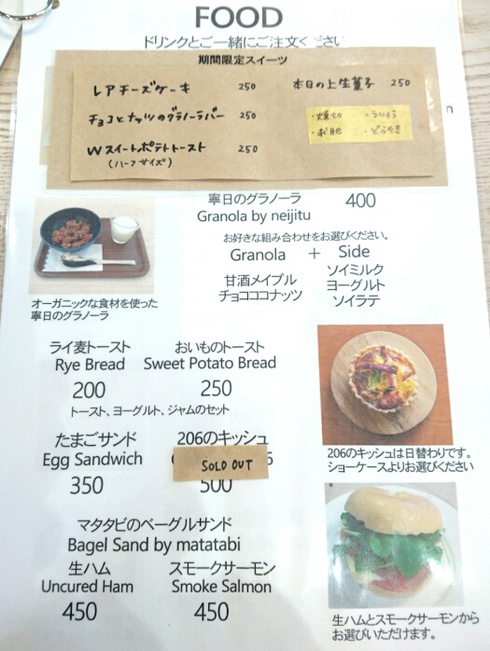 FOOD
ドリンクとご一緒にご注文ください
期間限定スイーツ
レアチーズケーキ 250
本日の上生菓子 250
チョコとナッツのグラノーラバー 250
・うぃろう
・どらやき
Wスイートポテトトースト 250
(ハーフサイズ)
寧日のグラノーラ 400
Granola by neijitu
お好きな組み合わせをお選びください。
Granola + Side
甘酒メイプル
チョコココナッツ
ソイミルク
ヨーグルト
ソイラテ
オーガニックな食材を使った
寧日のグラノーラ
ライ麦トースト
Rye Bread
200
おいものトースト
Sweet Potato Bread
250
トースト、ヨーグルト、ジャムのセット
たまごサンド
Egg Sandwich
350
206のキッシュ
SOLD OUT
500
206のキッシュは日替わりです。
ショーケースよりお選びください
マタタビのベーグルサンド
Bagel Sand by matatabi
生ハム
Uncured Ham
450
スモークサーモン
Smoke Salmon
450
生ハムとスモークサーモンから
お選びいただけます。